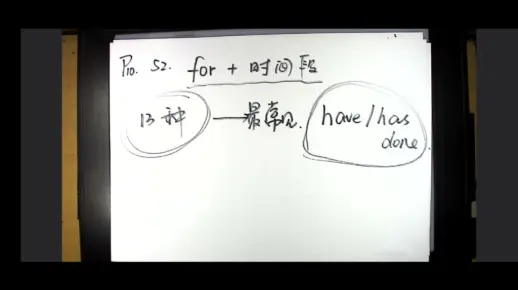 P10. 52. for + 时间段
13种 — 最常见. have/has
done.